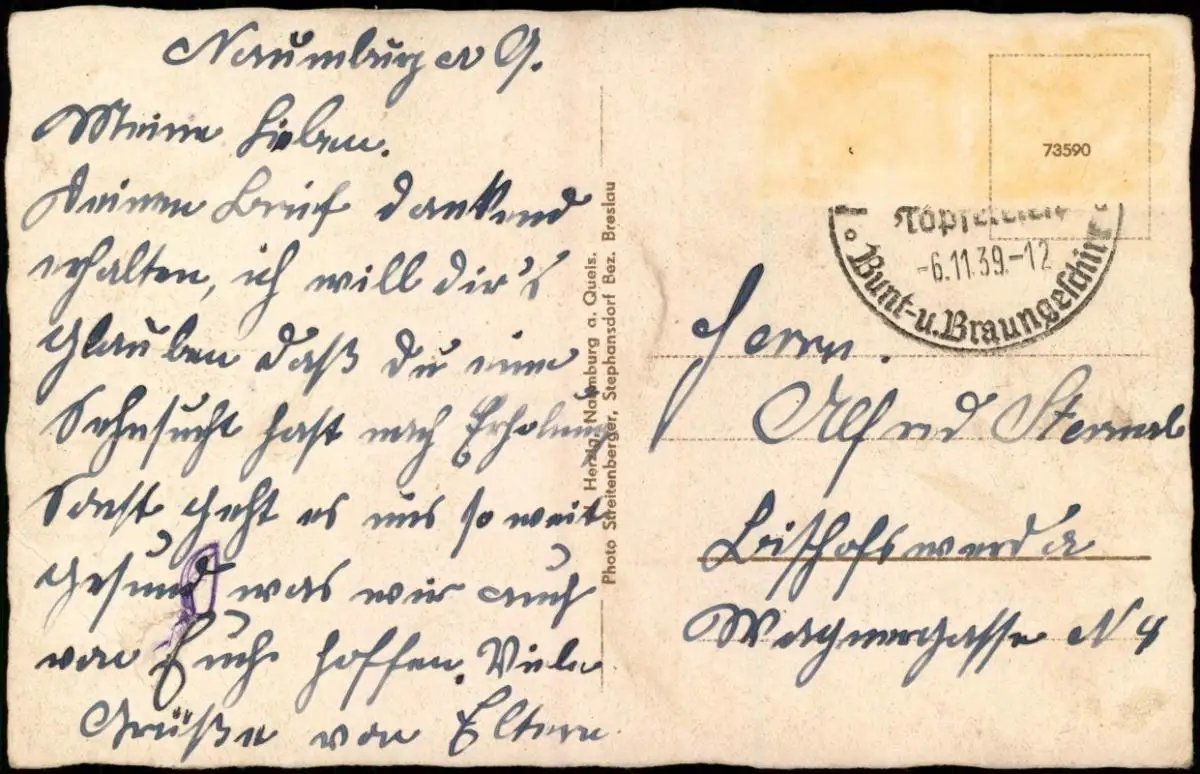 Naumburg a Q.
Meine Lieben.
Deinen Brief dankend
erhalten, ich will dir's
Glauben daß du eine
Sehnsucht hast nach Erholung
Sonst geht es uns so weit
gesund was wir auch
von Euch hoffen. Viele
Grüße von Eltern
H. Herzig, Naumburg a. Queis.
Photo Streitenberger, Stephansdorf Bez. Breslau
73590
-6.11.39.-12
Bunt-u.Braungeschirr
Herrn.
Alfred
Bischofswerda
Wagnergasse N